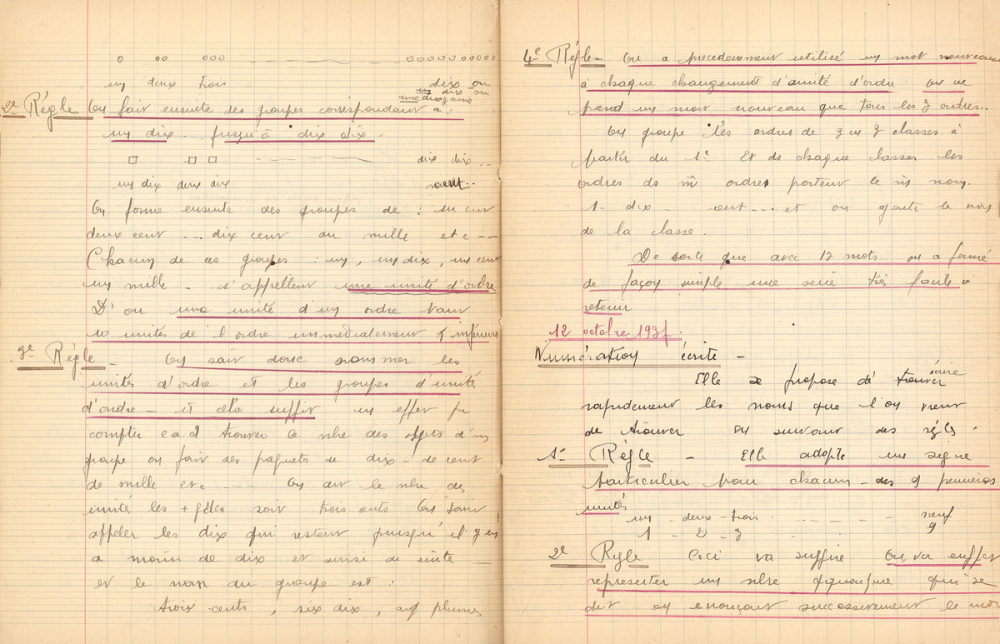 un deux trois dix ou
un dix ou
une dizaine
2e Règle On fait ensuite des groupes correspondant à :
un dix. jusqu'à dix dix.
dix dix
un dix deux dix cent..
On forme ensuite des groupes de : un cent
deux cent ... dix cent ou mille etc --
Chacun de ces groupes : un, un dix, un cent
un mille - s'appellent une unité d'ordre
D'où une unité d'un ordre vaut
10 unités de l'ordre immédiatement inférieur
3e Règle - On sait donc nommer les
unités d'ordre et les groupes d'unité
d'ordre - et cela suffit en effet pr
compter c a d trouver le nbre des objets d'un
groupe on fait des paquets de dix - de cent
de mille etc ---- On dit le nbre des
unités les + gdes soit trois cents On
appeler les dix qui restent puisqu'il y en
a moins de dix et ainsi de suite -
et le nom du groupe est :
trois cents, six dix, plumes
4e Règle - On a précédemment utilisé un mot nouveau
à chaque changement d'unité d'ordre on ne
prend un mot nouveau que tous les 3 ordres..
On groupe les ordres de 3 en 3 classes à
partir du 1e Et ds chaque classes les
ordres ds m̂ ordres portent le m̂ nom.
1 - dix - cent... et on ajoute le nom
de la classe.
De sorte que avec 12 mots on a formé
de façon simple une série très facile à
retenir
12 octobre 193
Numération écrite -
Elle se propose d' trouver écrire
rapidement les noms que l'on vient
de trouver en suivant des règles.
1e Règle - Elle adopte un signe
particulier pour chacun des 9 premières
unités
un - deux - trois - - - - neuf
1 - 2 - 3 9
2e Règle Ceci va suffire On va en effet
représenter un nbre quelconque qui se
dit en énonçant successivement le mot